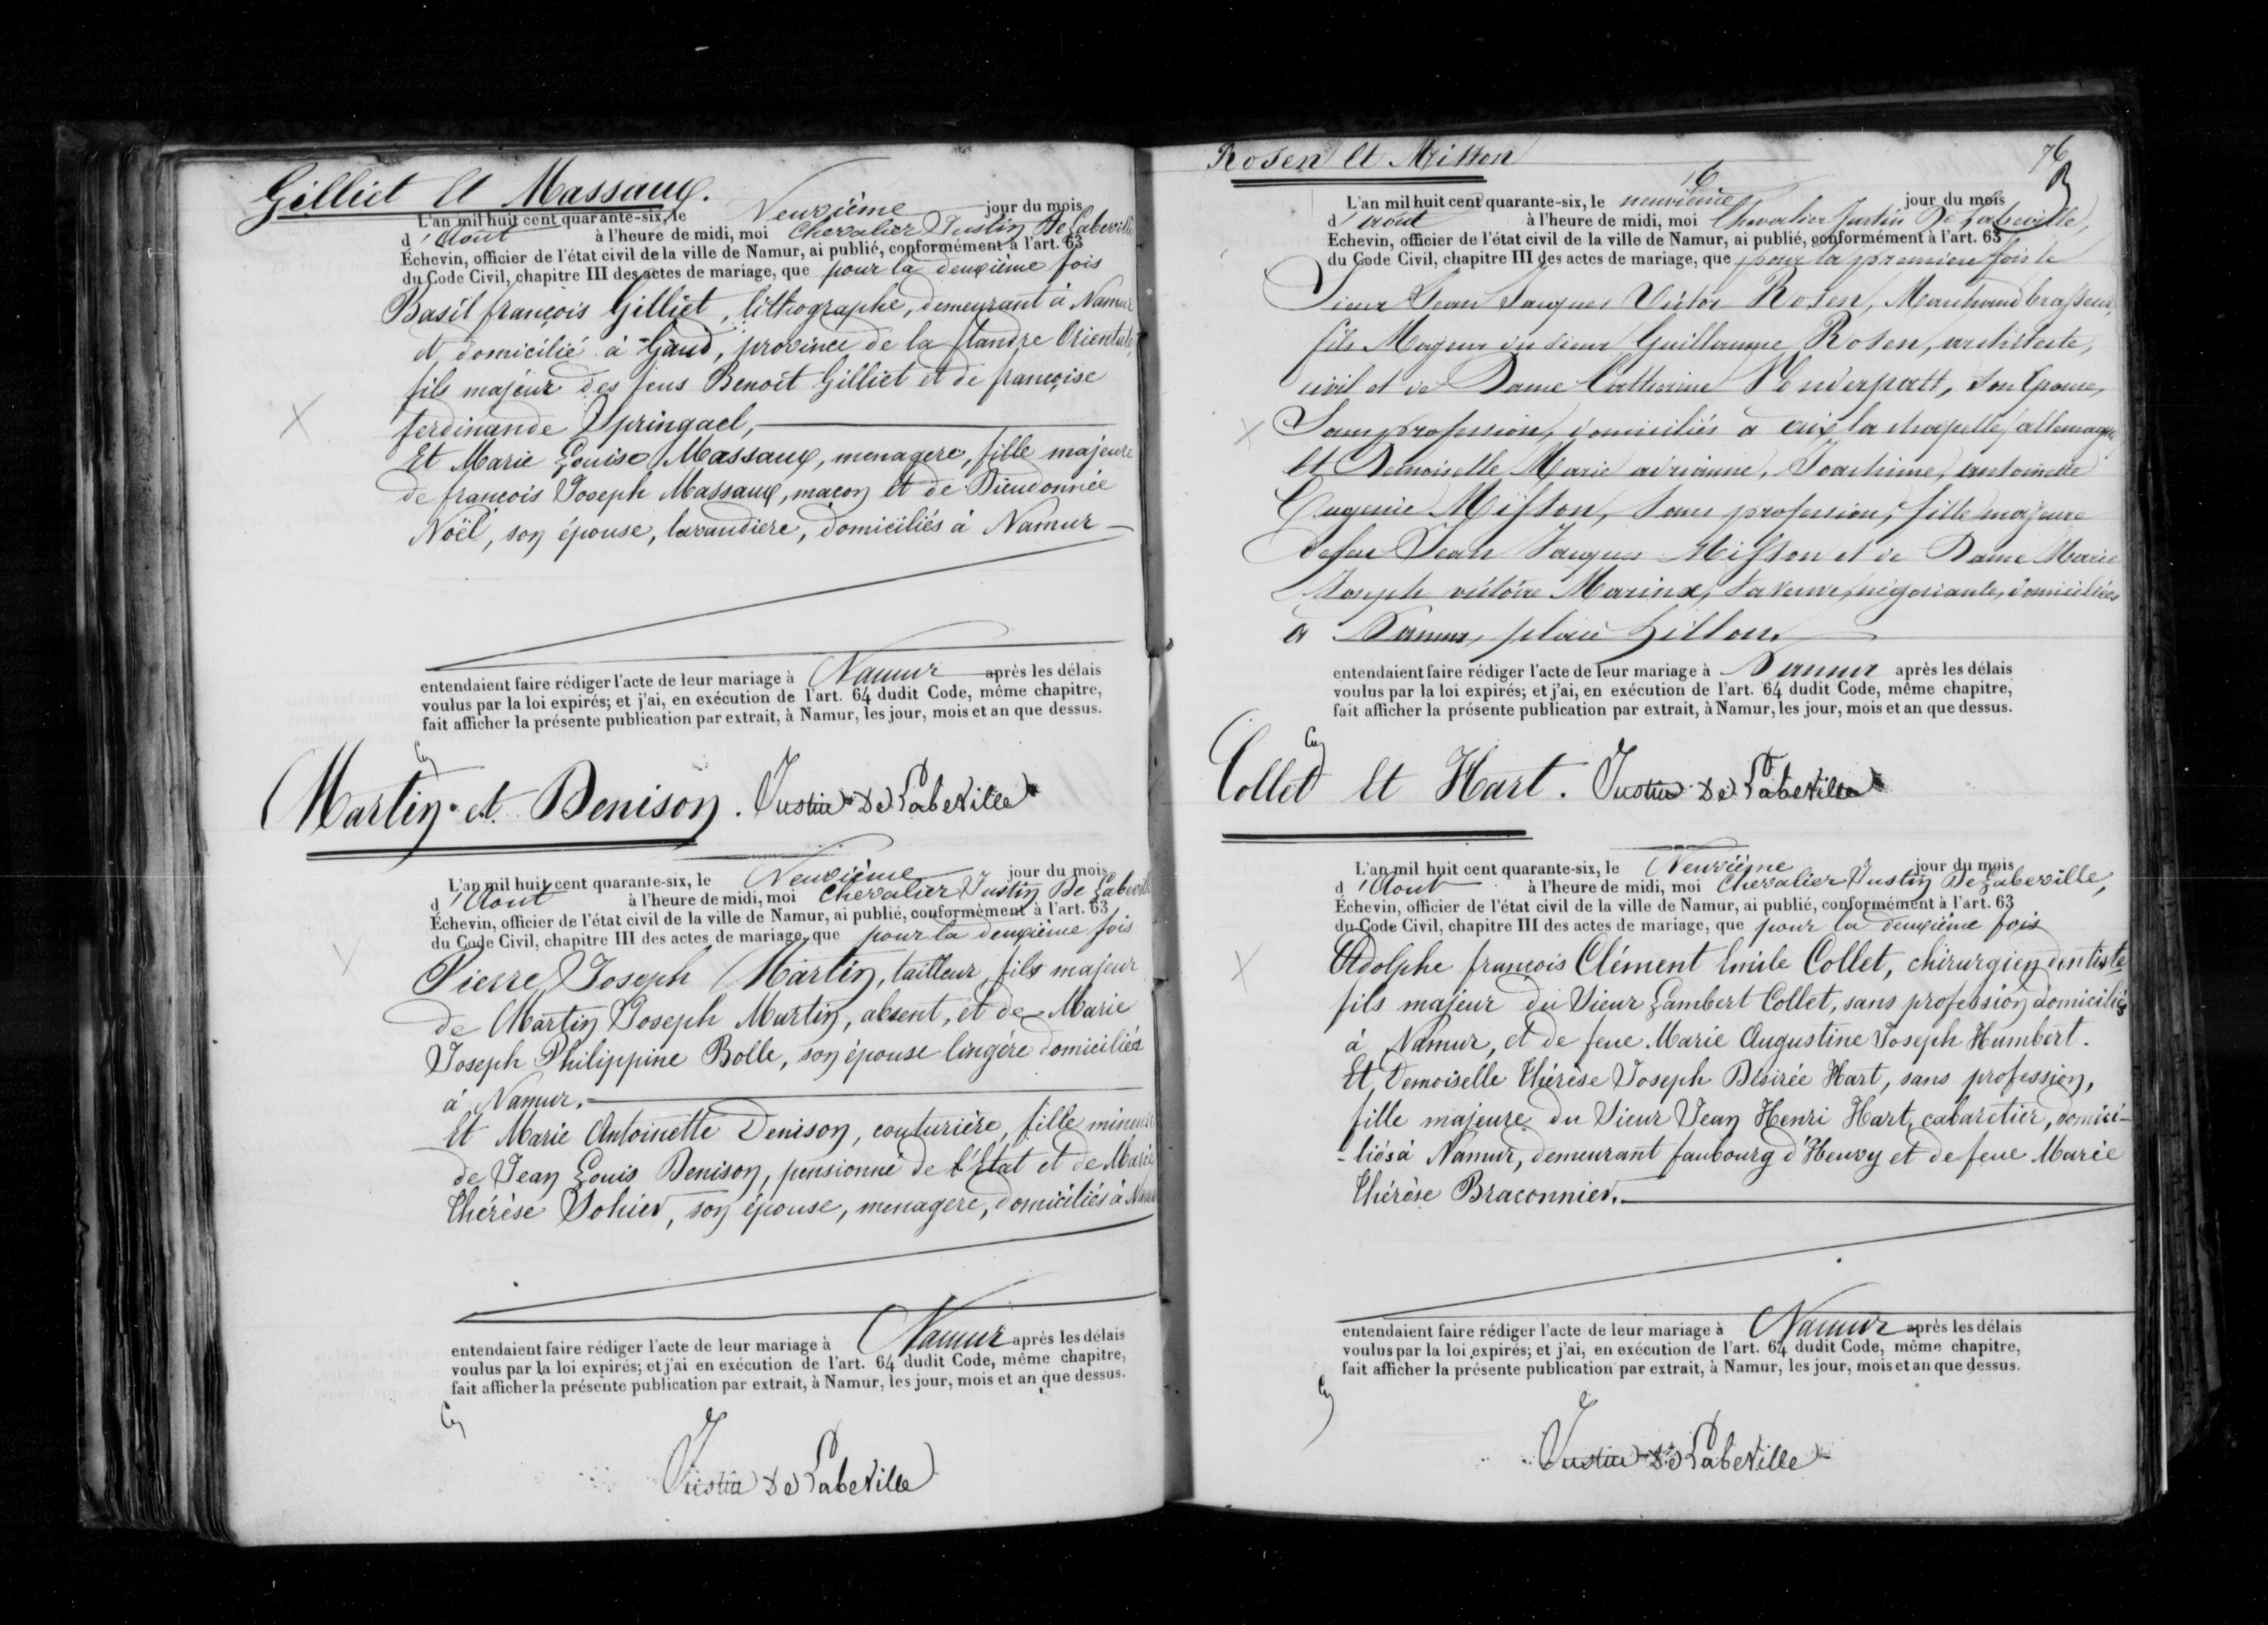 Gilliet et Massaux.
L'an mil huit cent quarante-six, le Neuvième jour du mois
d'Août à l'heure de midi, moi Chevalier Justin De Labeville
Échevin, officier de l'état civil de la ville de Namur, ai publié, conformément à l'art. 63
du Code Civil, chapitre III des actes de mariage, que pour la deuxième fois
Basil françois Gilliet, lithographe, demeurant à Namur
et domicilié à Gand, province de la flandre Orientale,
fils majeur des feus Benoît Gilliet et de françoise
ferdinande Springael,
Et Marie Louise Massaux, menagere, fille majeure
de françois Joseph Massaux, maçon et de Dieudonnée
Noël, son épouse, lavandiere, domiciliés à Namur
entendaient faire rédiger l'acte de leur mariage à Namur après les délais
voulus par la loi expirés; et j'ai, en exécution de l'art. 64 dudit Code, même chapitre,
fait afficher la présente publication par extrait, à Namur, les jour, mois et an que dessus.
Justin De Labeville
Martin et Denison.
L'an mil huit cent quarante-six, le Neuvième jour du mois
d'Août à l'heure de midi, moi Chevalier Justin De Labeville
Échevin, officier de l'état civil de la ville de Namur, ai publié, conformément à l'art. 63
du Code Civil, chapitre III des actes de mariage, que pour la deuxième fois
Pierre Joseph Martin, tailleur, fils majeur
de Martin Joseph Martin, absent, et de Marie
Joseph Philippine Bolle, son épouse lingère domiciliés
à Namur.
Et Marie Antoinette Denison, couturière, fille mineure
de Jean Louis Denison, pensionné de l'État et de Marie
Thérèse Sohier, son épouse, menagere, domiciliés à Namur
entendaient faire rédiger l'acte de leur mariage à Namur après les délais
voulus par la loi expirés; et j'ai en exécution de l'art. 64 dudit Code, même chapitre,
fait afficher la présente publication par extrait, à Namur, les jour, mois et an que dessus.
Justin De Labeville
76
Rosen et Misson
16
L'an mil huit cent quarante-six, le neuvième jour du mois
d'août à l'heure de midi, moi Chevalier Justin De Labeville,
Échevin, officier de l'état civil de la ville de Namur, ai publié, conformément à l'art. 63
du Code Civil, chapitre III des actes de mariage, que pour la premiere fois le
Sieur Jean Jacques Victor Rosen, Marchand brasseur,
fils Majeur du sieur Guillaume Rosen, architecte,
civil et de Dame Catherine son Epouse,
Sans profession, domiciliés à aix la chapelle (allemagne
Et Demoiselle Marie adrianne, Joachime, antoinette
Eugenie Misson, Sans profession, fille majeure
de feu Jean Jacques Misson et de Dame Marie
Joseph victoire Marinx, Sa veuve, négociante, domiciliées
à Namur, place Lillon.
entendaient faire rédiger l'acte de leur mariage à Namur après les délais
voulus par la loi expirés; et j'ai, en exécution de l'art. 64 dudit Code, même chapitre,
fait afficher la présente publication par extrait, à Namur, les jour, mois et an que dessus.
Justin De Labeville
Collet et Hart.
L'an mil huit cent quarante-six, le Neuvième jour du mois
d'Août à l'heure de midi, moi Chevalier Justin De Labeville,
Échevin, officier de l'état civil de la ville de Namur, ai publié, conformément à l'art. 63
du Code Civil, chapitre III des actes de mariage, que pour la deuxième fois
Adolphe françois Clément Emile Collet, chirurgien dentiste
fils majeur du Sieur Lambert Collet, sans profession domiciliés
à Namur, et de feue Marie Augustine Joseph Humbert.
Et Demoiselle Thérèse Joseph Désirée Hart, sans profession,
fille majeure du Sieur Jean Henri Hart, cabaretier, domici-
-liés à Namur, demeurant faubourg d'Heuvy et de feue Marie
Thérèse Braconnier.
entendaient faire rédiger l'acte de leur mariage à Namur après les délais
voulus par la loi expirés; et j'ai, en exécution de l'art. 64 dudit Code, même chapitre,
fait afficher la présente publication par extrait, à Namur, les jour, mois et an que dessus.
Justin De Labeville